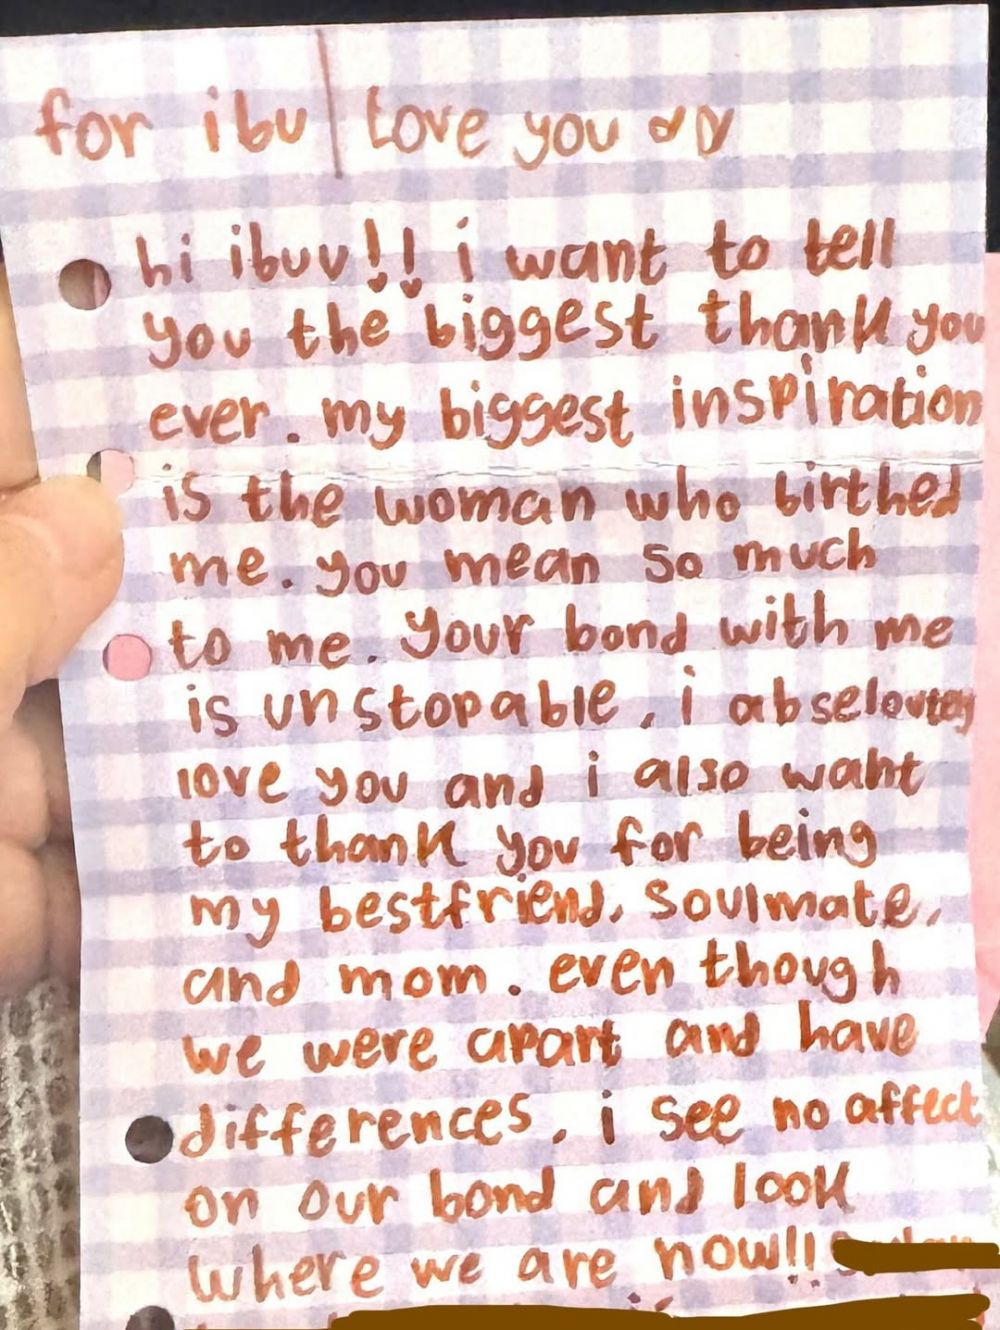 for ibu | Love you
hi ibuu!! i want to tell
you the biggest thank you
ever. my biggest inspiration
is the woman who birthed
me. you mean so much
to me. Your bond with me
is unstopable, i abseloutey
love you and i also want
to thank you for being
my bestfriend, soulmate,
and mom. even though
we were apart and have
differences, i see no affect
on our bond and look
where we are now!!